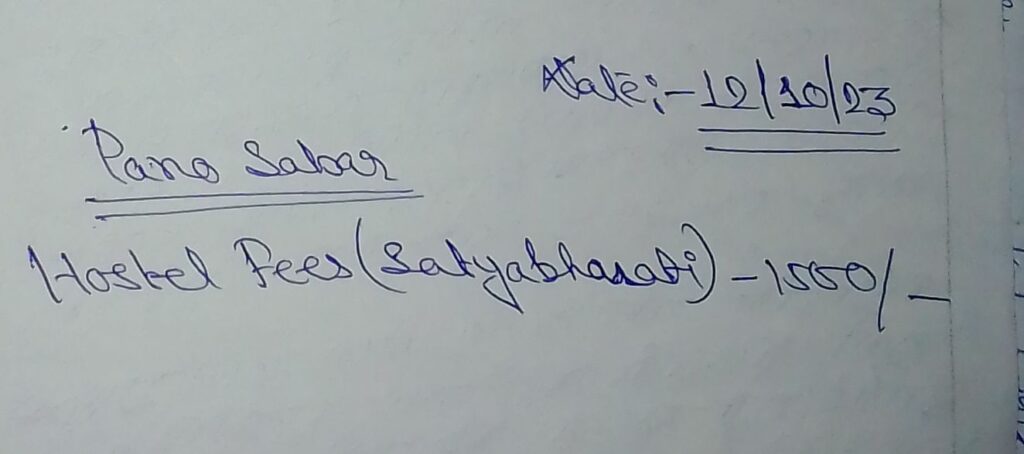 Date:- 12/10/23
Pano Sabar
Hostel Fees (Satyabharati) - 1550/-